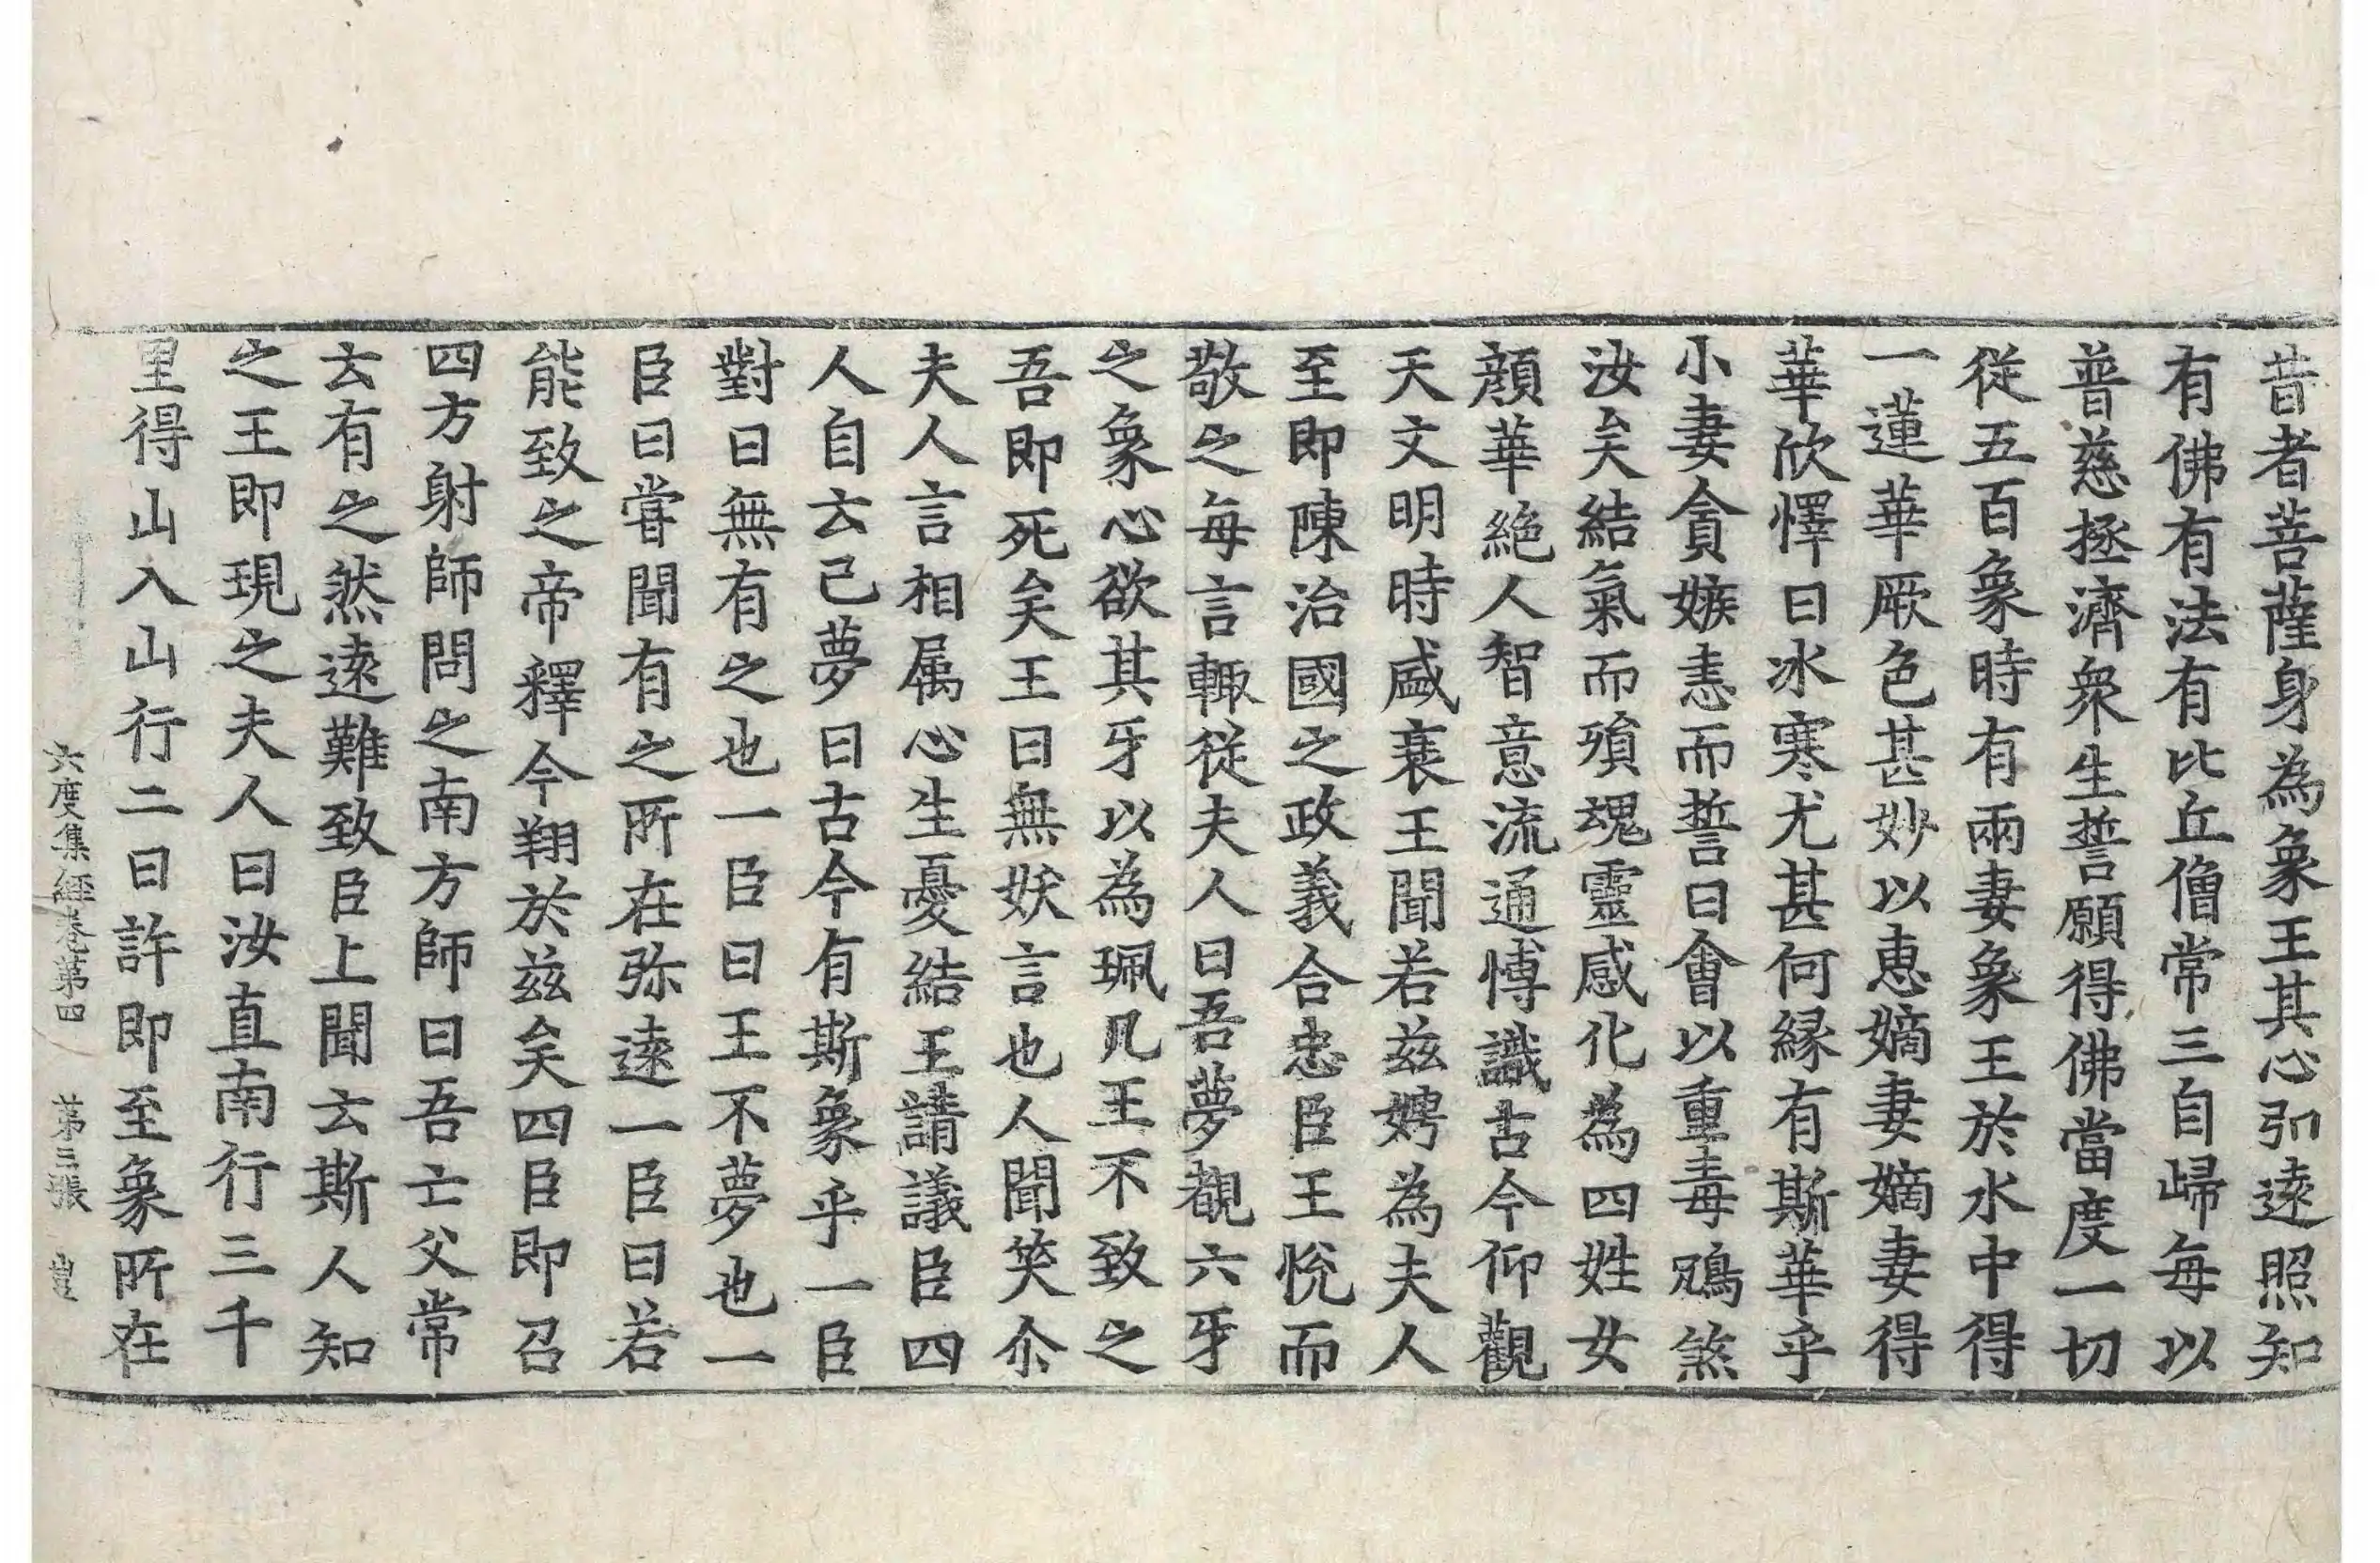 昔者菩薩身為象王其心弘遠照知
有佛有法有比丘僧常三自歸每以
普慈拯濟衆生誓願得佛當度一切
從五百象時有兩妻象王於水中得
一蓮華厥色甚妙以惠嫡妻嫡妻得
華欣懌曰冰寒尤甚何緣有斯華乎
小妻貪嫉恚而誓曰會以重毒鴆煞
汝矣結氣而殞魂靈感化為四姓女
顏華絶人智意流通博識古今仰觀
天文明時盛衰王聞若茲娉為夫人
至即陳治國之政義合忠臣王悅而
敬之每言輒從夫人曰吾夢覩六牙
之象心欲其牙以為珮几王不致之
吾即死矣王曰無妖言也人聞笑尒
夫人言相属心生憂結王請議臣四
人自云己夢曰古今有斯象乎一臣
對曰無有之也一臣曰王不夢也一
臣曰甞聞有之所在弥遠一臣曰若
能致之帝釋今翔於茲矣四臣即召
四方射師問之南方師曰吾亡父常
云有之然遠難致臣上聞云斯人知
之王即現之夫人曰汝直南行三千
里得山入山行二日許即至象所在
六度集經卷第四 第三張 豊